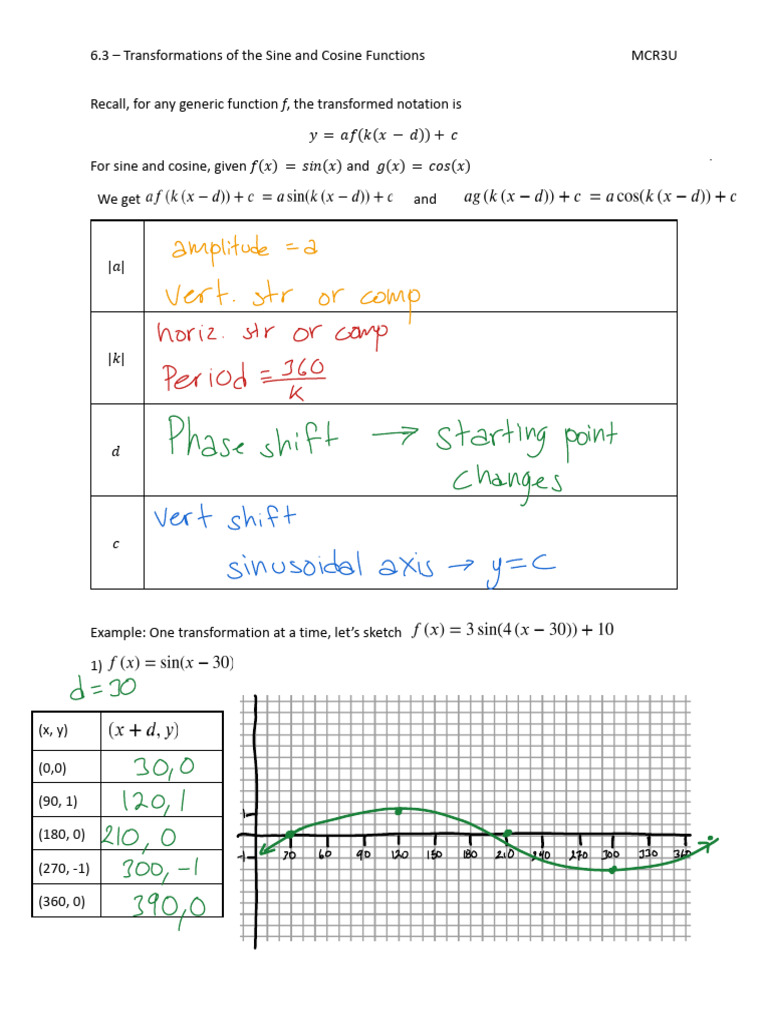 6.3 – Transformations of the Sine and Cosine Functions MCR3U
Recall, for any generic function f, the transformed notation is
y = af(k(x − d)) + c
For sine and cosine, given f(x) = sin(x) and g(x) = cos(x)
We get af (k (x − d)) + c = a sin(k (x − d)) + c and ag (k (x − d)) + c = a cos(k (x − d)) + c
|a|
amplitude = a
Vert. str or comp
|k|
horiz. str or comp
Period = 360/k
d
Phase shift → starting point
changes
c
vert shift
sinusoidal axis → y=c
Example: One transformation at a time, let's sketch f (x) = 3 sin(4 (x − 30)) + 10
1) f (x) = sin(x − 30)
d = 30
(x, y) (x + d, y)
(0,0) 30,0
(90, 1) 120,1
(180, 0) 210,0
(270, -1) 300,-1
(360, 0) 390,0
1
-1 30 60 90 120 150 180 210 240 270 300 330 360